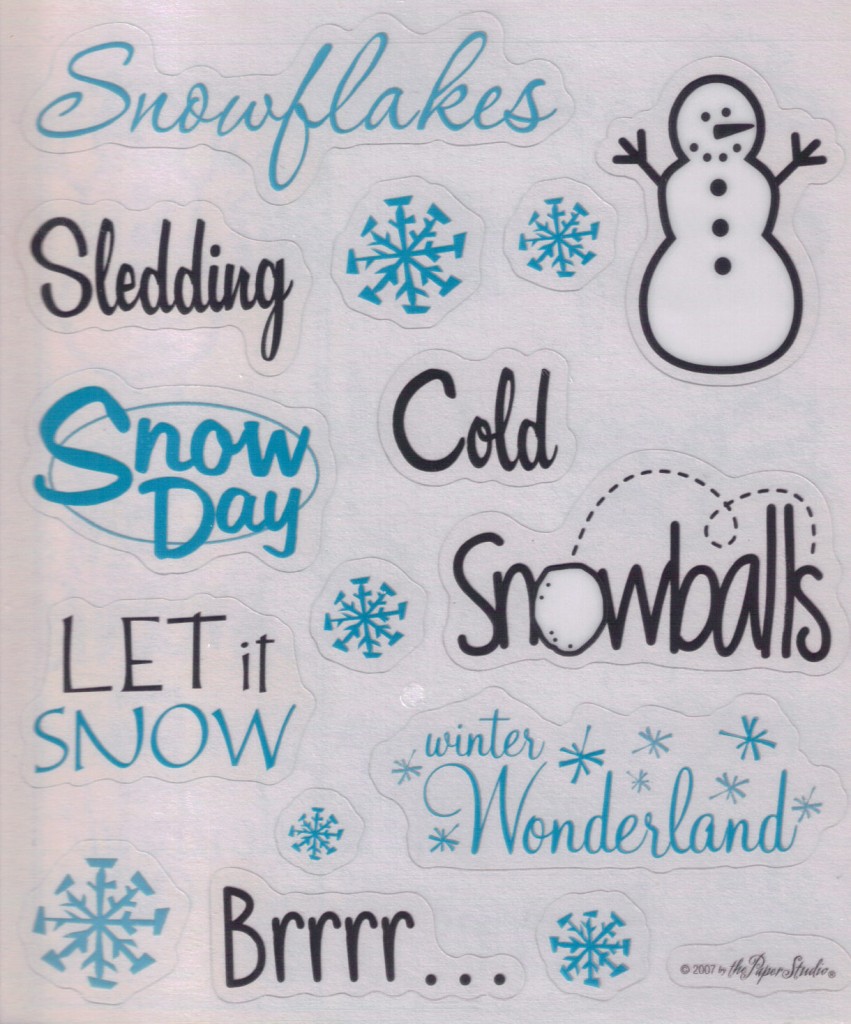 Snowflakes
Sledding
Cold
Snow
Day
Snowballs
LET it
SNOW
winter
Wonderland
Brrrr...
© 2007 by the Paper Studio®